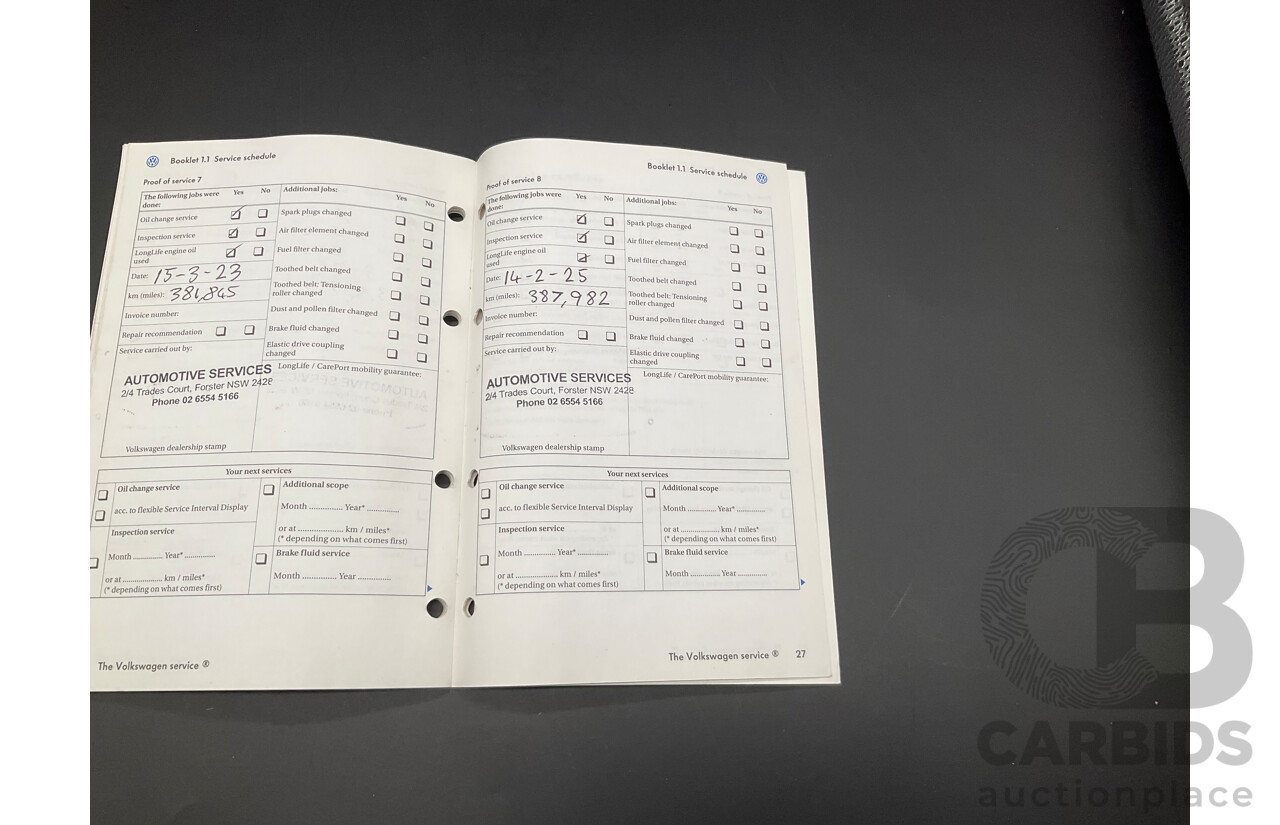 Booklet 1.1 Service schedule
Proof of service 7
The following jobs were done: Yes No
Oil change service
Inspection service
LongLife engine oil used
Date: 15-3-23
km (miles): 381,845
Invoice number:
Repair recommendation
Service carried out by:
AUTOMOTIVE SERVICES
2/4 Trades Court, Forster NSW 2428
Phone 02 6554 5166
Volkswagen dealership stamp
Additional jobs: Yes No
Spark plugs changed
Air filter element changed
Fuel filter changed
Toothed belt changed
Toothed belt: Tensioning
roller changed
Dust and pollen filter changed
Brake fluid changed
Elastic drive coupling
changed
LongLife / CarePort mobility guarantee:
Your next services
Oil change service
acc. to flexible Service Interval Display
Inspection service
Month .............. Year* ...............
or at ...................... km / miles*
(* depending on what comes first)
Additional scope
Month ............... Year* ...............
or at ...................... km / miles*
(* depending on what comes first)
Brake fluid service
Month ............... Year ...............
The Volkswagen service ®
Booklet 1.1 Service schedule
Proof of service 8
The following jobs were done: Yes No
Oil change service
Inspection service
LongLife engine oil
used
Date: 14-2-25
km (miles): 387,982
Invoice number:
Repair recommendation
Service carried out by:
AUTOMOTIVE SERVICES
2/4 Trades Court, Forster NSW 2428
Phone 02 6554 5166
Volkswagen dealership stamp
Additional jobs: Yes No
Spark plugs changed
Air filter element changed
Fuel filter changed
Toothed belt changed
Toothed belt: Tensioning
roller changed
Dust and pollen filter changed
Brake fluid changed
Elastic drive coupling
changed
LongLife / CarePort mobility guarantee:
Your next services
Oil change service
acc. to flexible Service Interval Display
Inspection service
Month .............. Year* ...............
or at ...................... km / miles*
(* depending on what comes first)
Additional scope
Month .............. Year* ..............
or at ...................... km / miles*
(* depending on what comes first)
Brake fluid service
Month .............. Year ..............
The Volkswagen service ® 27
CB
CARBIDS
auctionplace